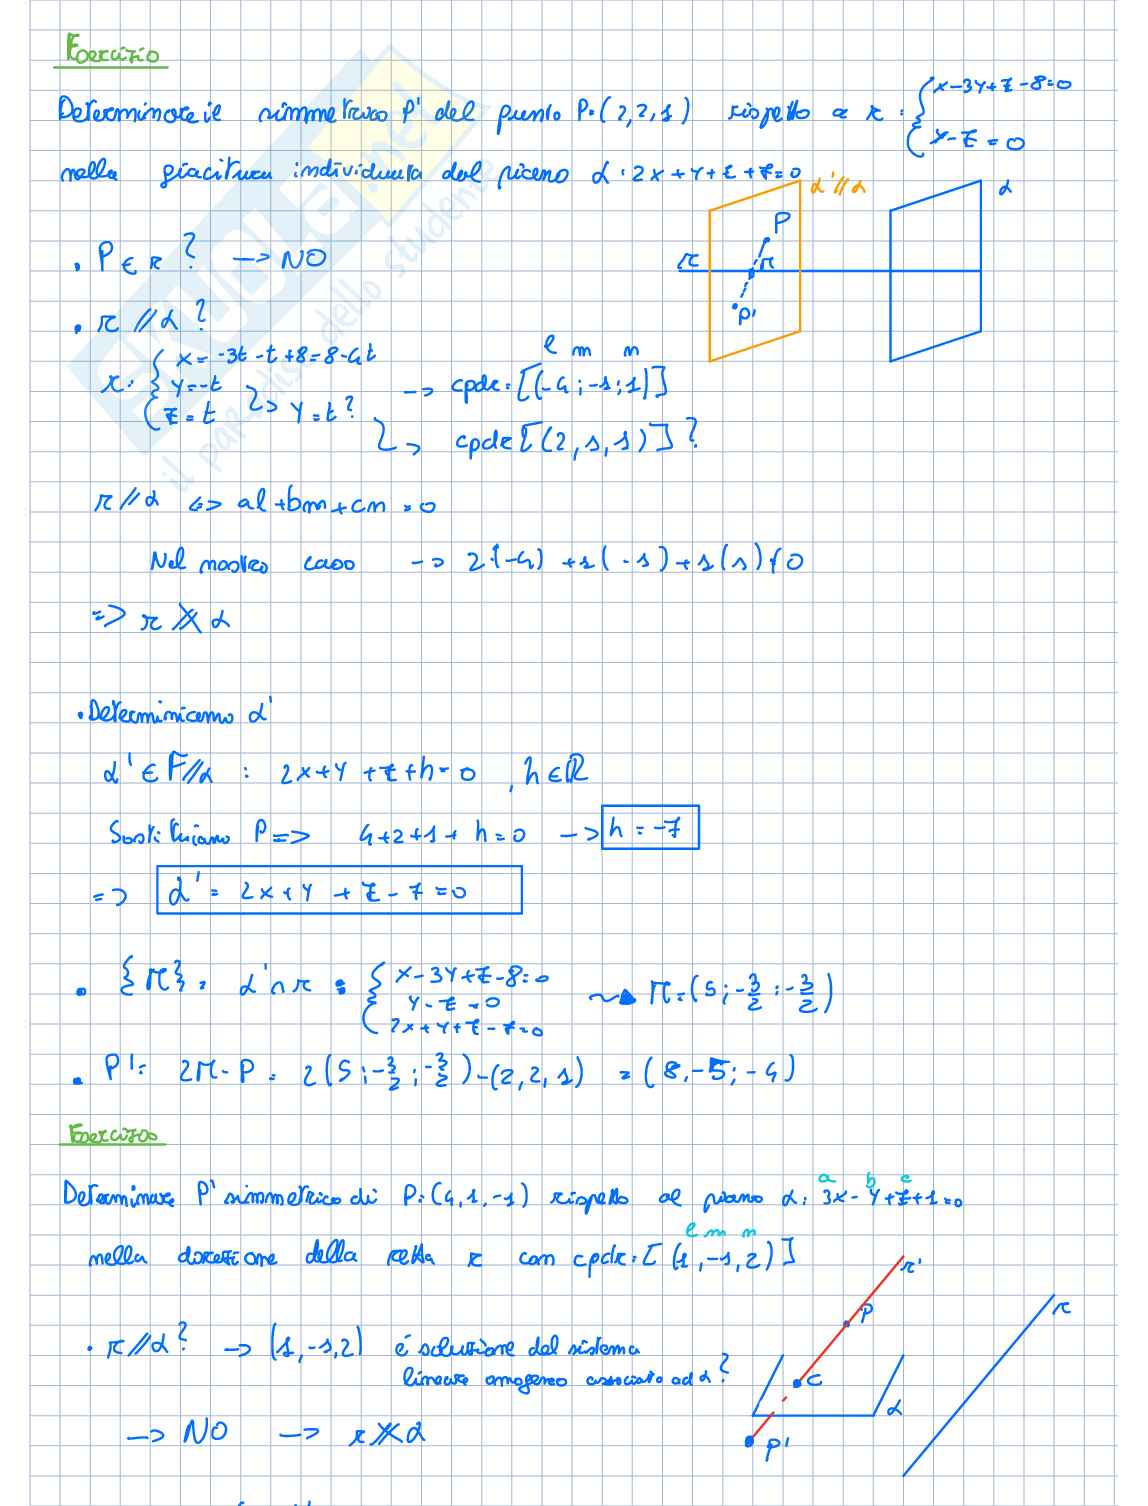 Esercizio
Determinare il simmetrico P' del punto P=(2,2,1) rispetto a r: { x-3y+z-8=0
y-z=0
nella giacitura individuata dal piano α: 2x+y+z+7=0
α'//α
α
P
r
M
P'
• P ∈ r ? -> NO
• r // α ?
r: { x= -3t-t+8=8-4t
y=-t
z=t
-> y=t?
l m n
-> cpdr=[(-4;-1;1)]
-> cpdr[(2,1,1)] ?
r//α <=> al+bm+cn=0
Nel nostro caso -> 2·(-4)+1(-1)+1(1)≠0
=> r ∦ α
• Determiniamo α'
α' ∈ F//α : 2x+y+z+h=0 , h∈ℝ
Sostituiamo P => 4+2+1+h=0 -> h=-7
=> α' = 2x+y+z-7=0
• {M} = α'∩r : { x-3y+z-8=0
y-z=0
2x+y+z-7=0
M=(5;-3/2;-3/2)
• P'= 2M-P = 2(5;-3/2;-3/2)-(2,2,1) = (8,-5;-4)
Esercizio
a b c
Determinare P' simmetrico di P=(4,1,-1) rispetto al piano α: 3x-y+z+1=0
l m n
nella direzione della retta r con cpdr=[(1,-1,2)]
r'
P
r
C
α
P'
• r//α? -> (1,-1,2) é soluzione del sistema
lineare omogeneo associato ad α?
-> NO -> r ∦ α